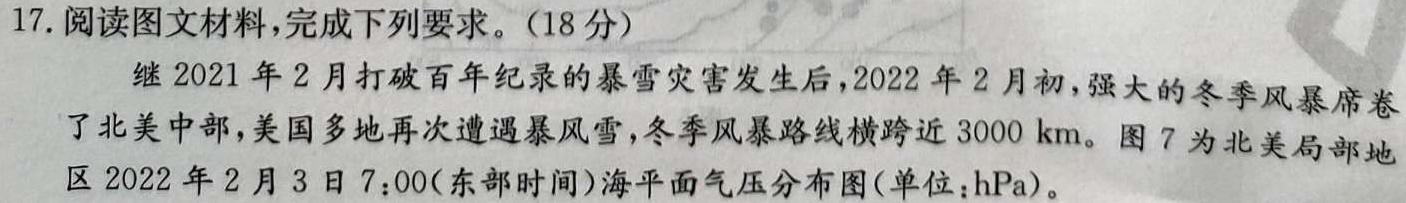 17. 阅读图文材料,完成下列要求。(18 分)
继 2021 年 2 月打破百年纪录的暴雪灾害发生后,2022 年 2 月初,强大的冬季风暴席卷
了北美中部,美国多地再次遭遇暴风雪,冬季风暴路线横跨近 3000 km。图 7 为北美局部地
区 2022 年 2 月 3 日 7:00(东部时间)海平面气压分布图(单位:hPa)。